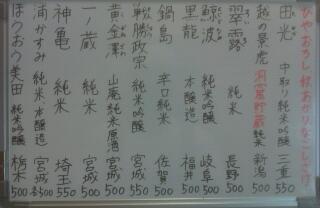 ひやおろし・秋あがりなごしざけ
田光 中取り純米吟醸 三重 550
越の景虎 洞窟貯蔵 純米 新潟 500
翠露 純米 長野 500
鯨波 純米吟醸 岐阜 500
黒龍 本醸造 福井 500
鍋島 辛口純米 佐賀 500
戦勝政宗 純米吟醸 宮城 550
黄金澤 山廃純米原酒 宮城 500
一ノ蔵 純米 宮城 500
神亀 純米 埼玉 550
浦かすみ 純米、本醸造 宮城 各500
ほうおう美田 純米吟醸 栃木 500